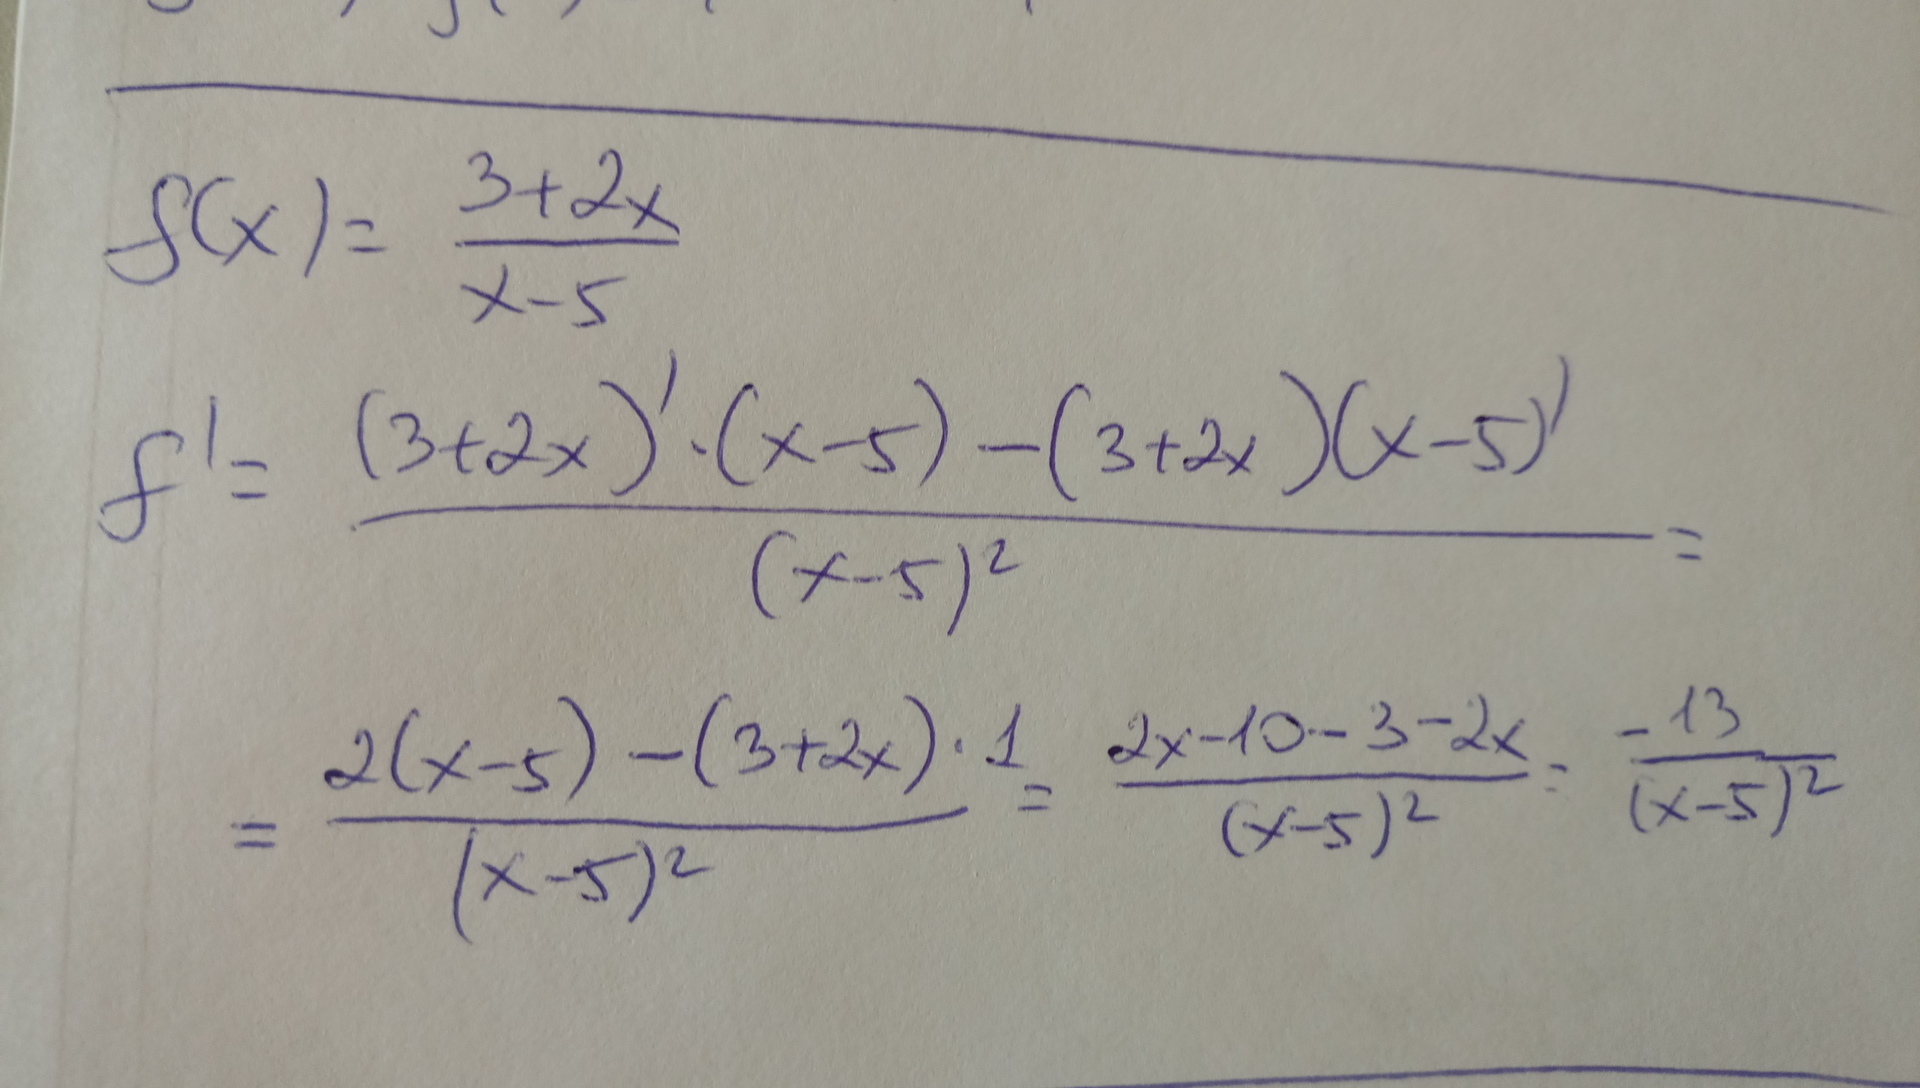 f(x) = (3+2x)/(x-5)
f' = ((3+2x)'·(x-5)-(3+2x)(x-5)')/(x-5)² =
= (2(x-5)-(3+2x)·1)/(x-5)² = (2x-10-3-2x)/(x-5)² = -13/(x-5)²